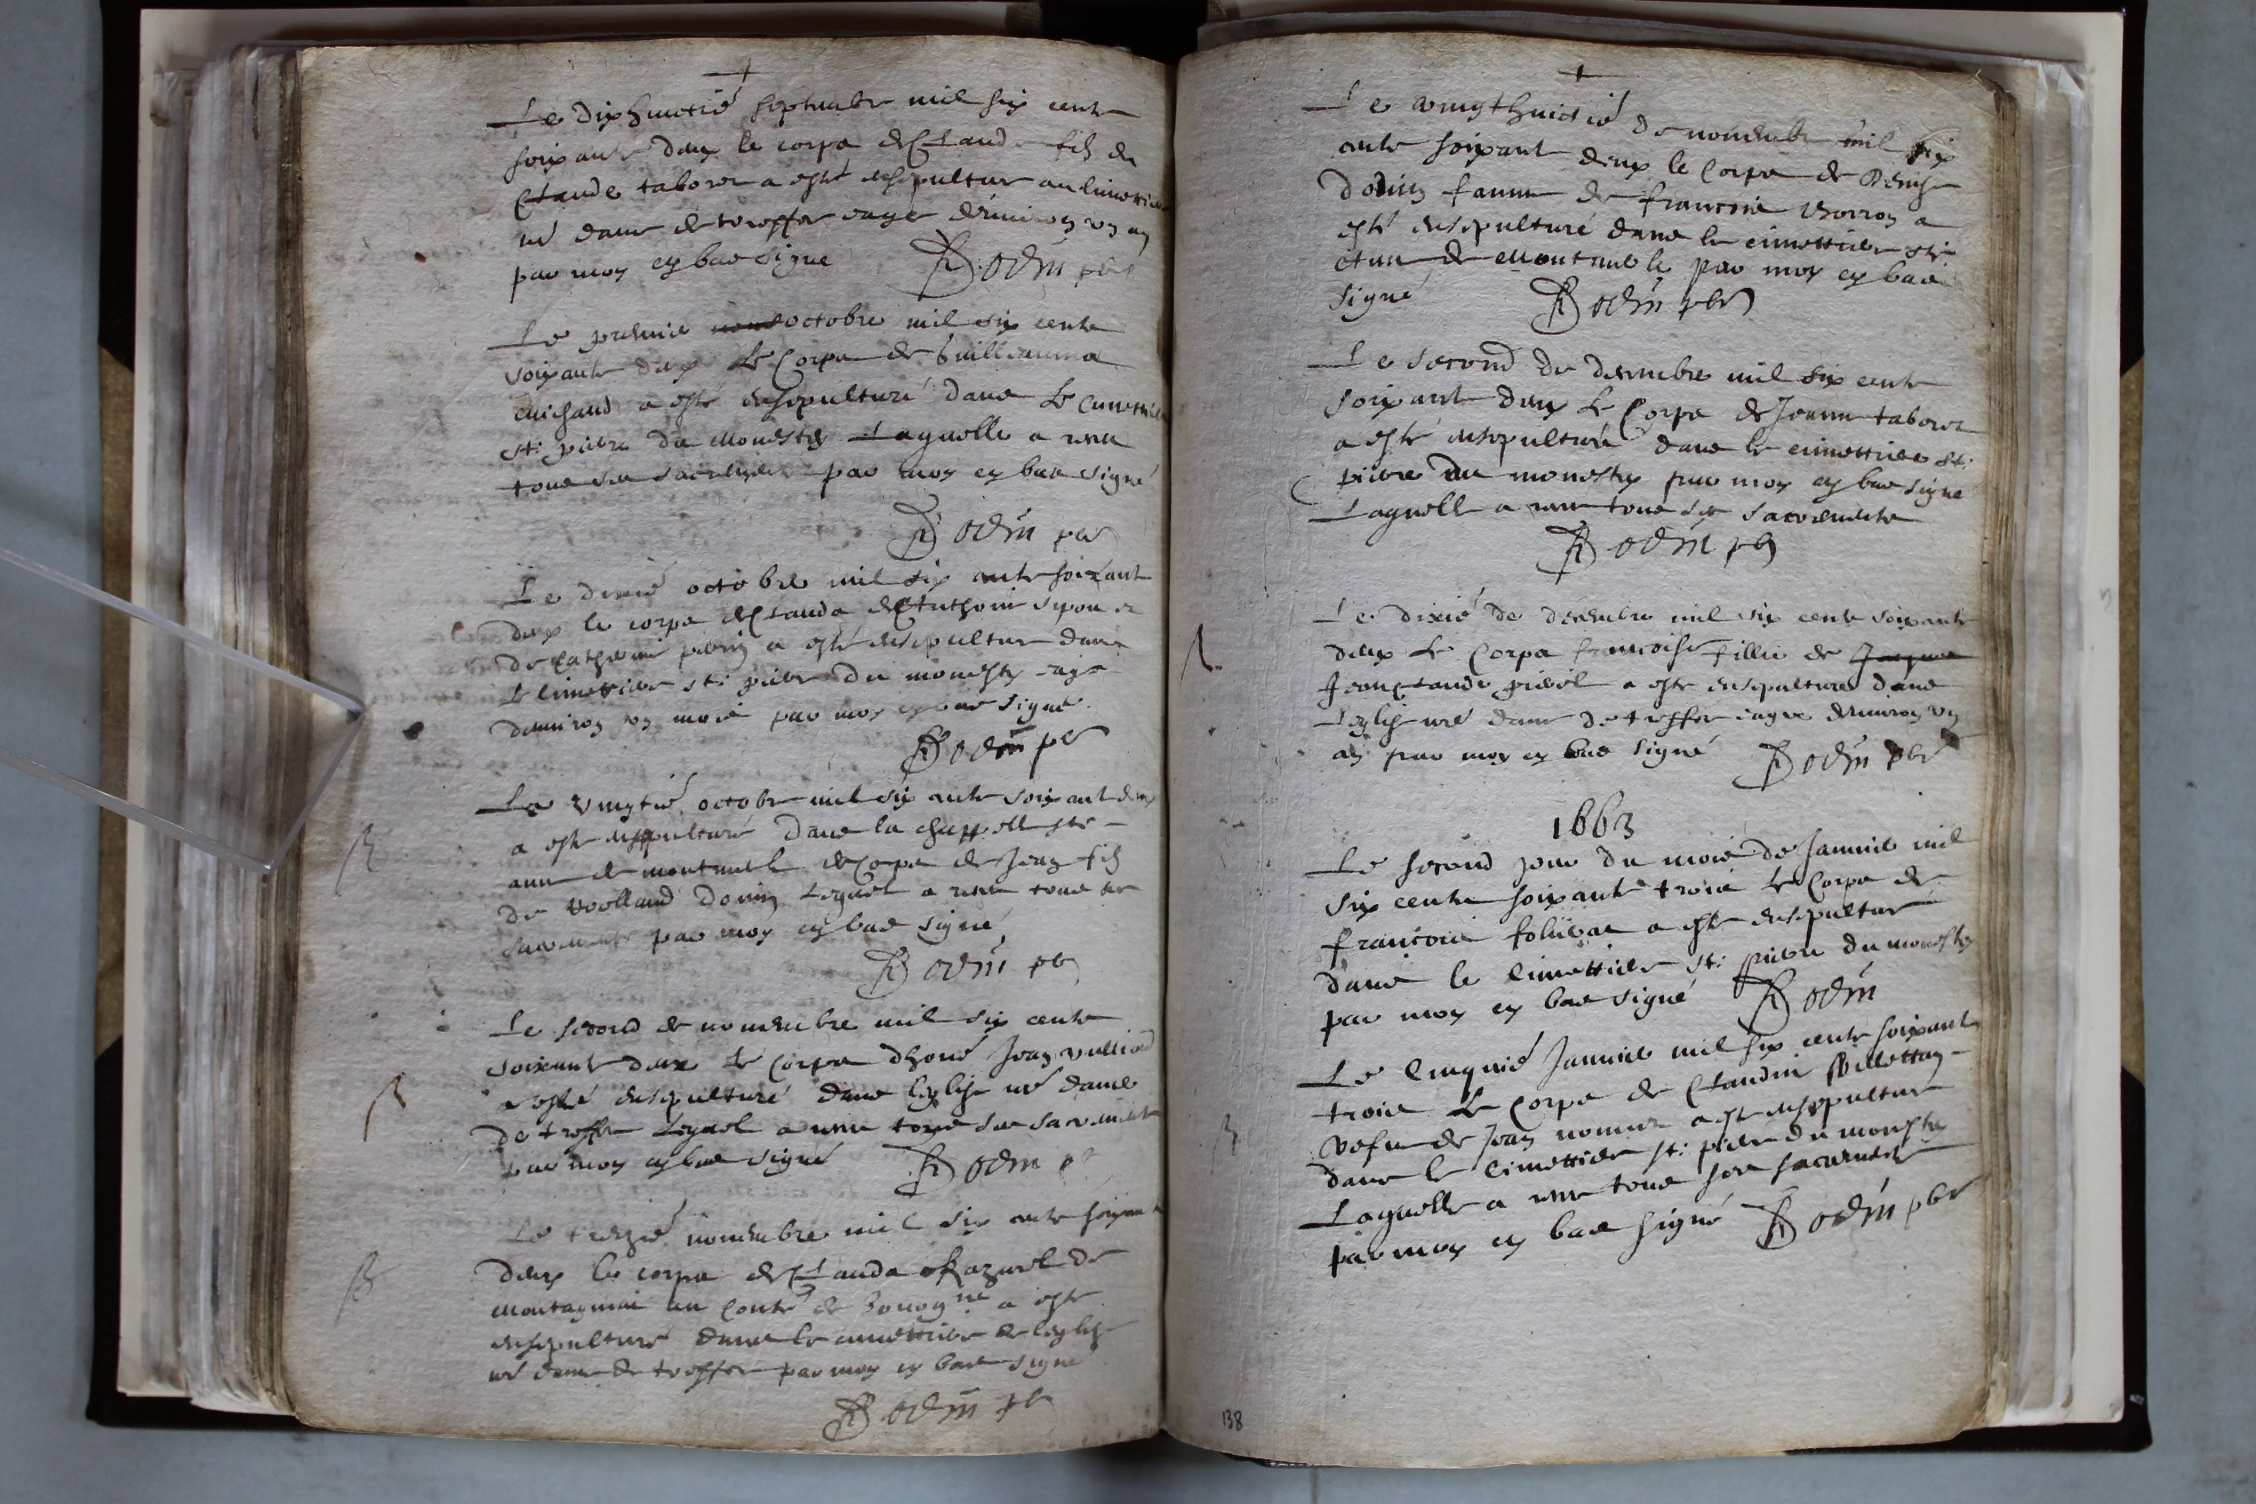 Le dixhuictié septembre mil six cents
soixante deux le corps de Claude fils de
Claude taboret a esté ensepulturé au cimettiere
nré dame de treffor eagé denviron un an
par moy cy bas signé Bodin pbr
Le premie octobre mil six cents
soixante deux Le Corps de Guillauma
michaud a esté ensepulturé dans Le cimettiere
st: pierre du monestey Laquelle a receu
tous ses sacrements par moy cy bas signé
Bodin pbr
Le dixié octobre mil six cents soixante
deux le corps de Clauda de Anthoine
de Catherine perin a esté ensepulturé dans
Le cimettiere st: pierre du monestey eagé
denviron un mois par moy cy bas signé
Bodin pbr
Le vingtié octobre mil six cents soixante deux
a esté ensepulturé dans la chappelle ste
anne de montmerle le Corps de Jean fils
de Rolland dodin Lequel a receu tous ses
sacrements par moy cy bas signé
Bodin pbr
Le second de novembre mil six cents
soixante deux Le Corps dhoné Jean vulliod
a esté ensepulturé dans leglise nré dame
de treffor Lequel a receu tous ses sacrements
par moy cy bas signé Bodin pb
Le trezié novembre mil six cents soixante
deux le corps de Clauda de
montagnia au Conté de bourgne a esté
ensepulturé dans le cimettiere de leglise
nré dame de treffor par moy cy bas signé
Bodin pbr
Le vingthuictié de novembre mil six
cents soixante deux le Corps de Denise
dodin famme de francois borron a
esté ensepulturé dans le cimettiere ste
anne de montmerle par moy cy bas
signé Bodin pbr
Le second de decembre mil six cents
soixante deux Le Corps de Jeanne taboret
a esté ensepulturé dans le cimettiere st:
pierre du monestey par moy cy bas signé
Laquelle a receu tous ses sacrements
Bodin pbr
Le dixié de decembre mil six cents soixante
deux Le Corps francoise fillie de Jaques
Jean Claude privel a esté ensepulturé dans
Leglise nré dame de treffor eagee denviron un
an par moy cy bas signé Bodin pbr
1663
Le second jour du mois de Janvie mil
six cents soixante trois Le Corps de
francois follivar a esté ensepulturé
dans le cimettiere st: pierre du monestey
par moy cy bas signé Bodin
Le cinquié Janvie mil six cents soixante
trois Le Corps de Claudine billettan
vefve de Jean a esté ensepulturé
dans le cimettiere st: pierre du monestey
Laquelle a receu tous ses sacrements
par moy cy bas signé Bodin pbr
138